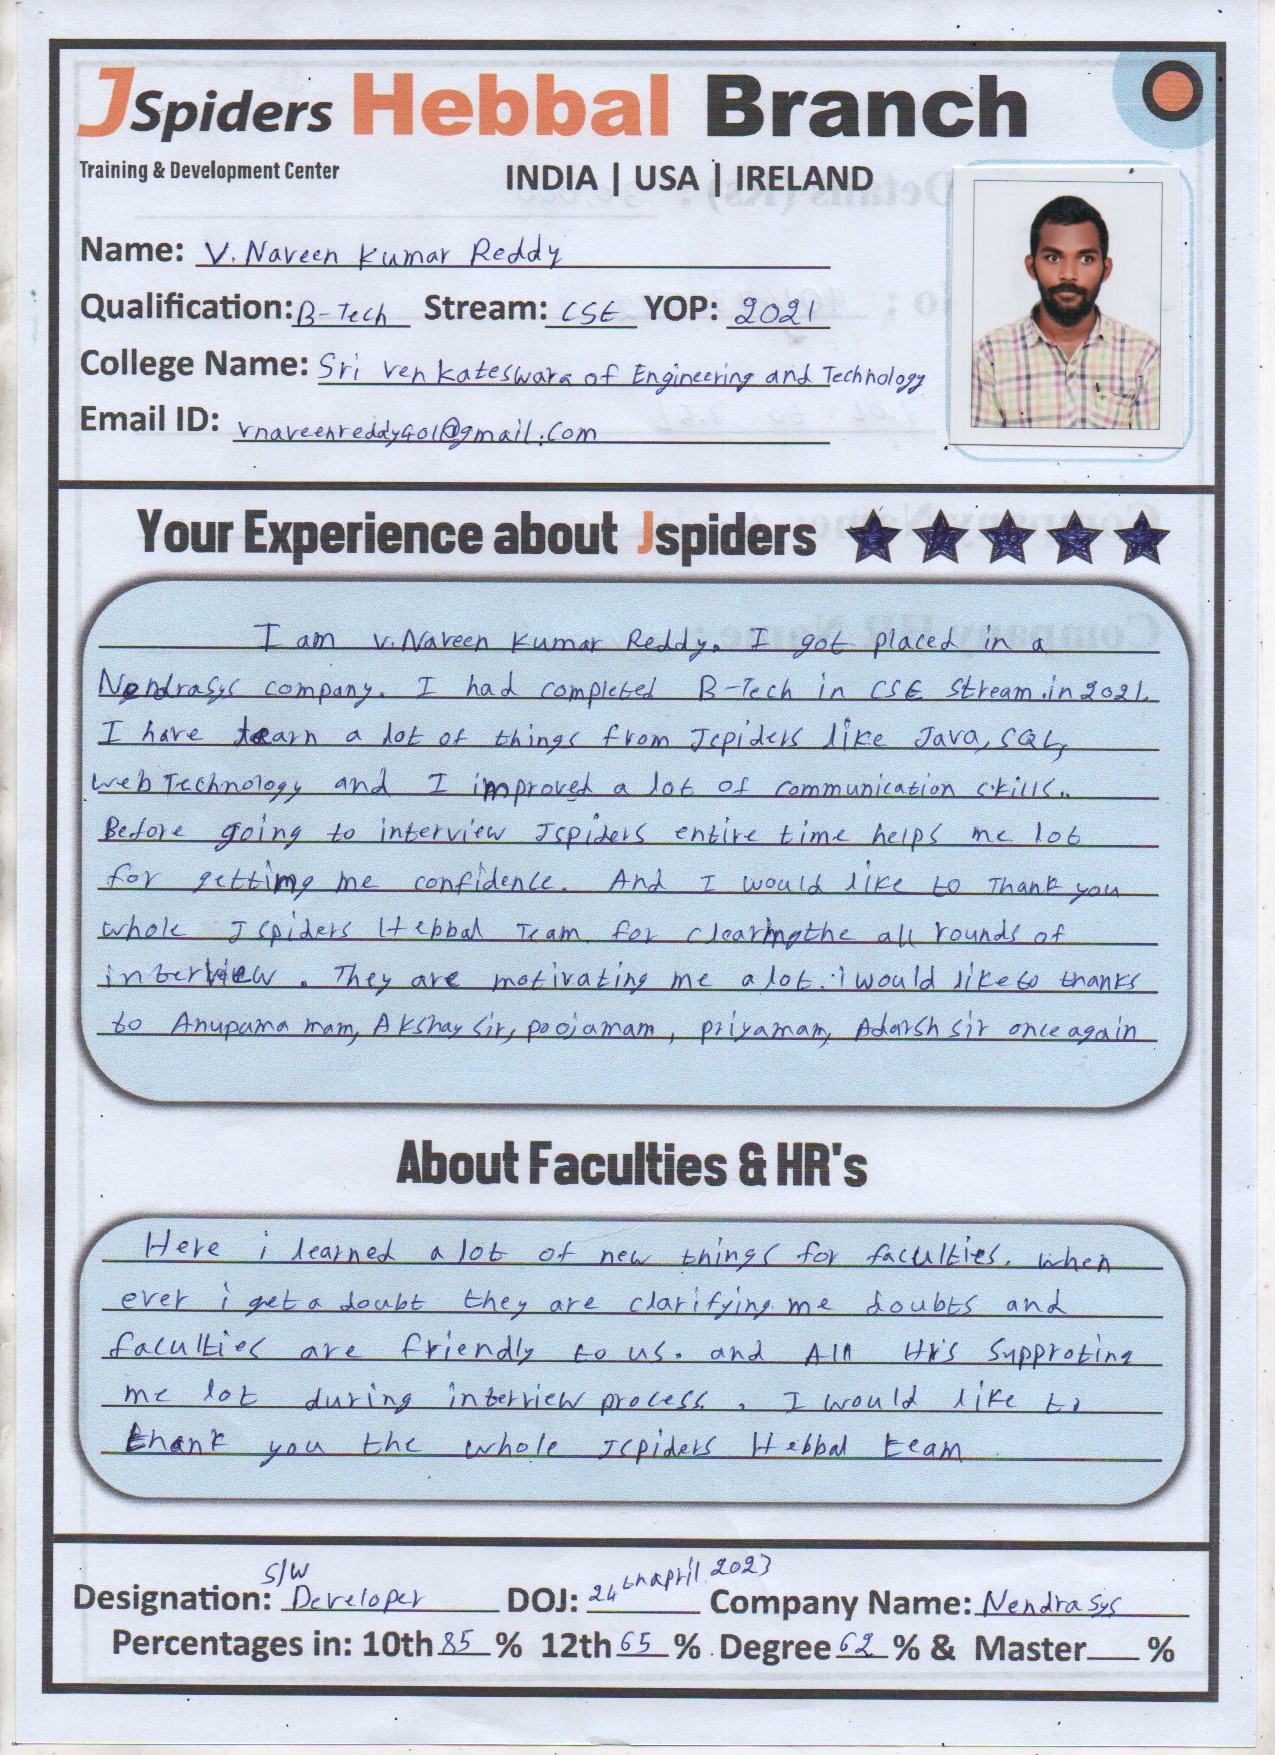 JSpiders Hebbal Branch
Training & Development Center
INDIA | USA | IRELAND
Name: V. Naveen Kumar Reddy
Qualification: B-Tech Stream: CSE YOP: 2021
College Name: Sri Venkateswara of Engineering and Technology
Email ID: vnaveenreddy401@gmail.com
Your Experience about Jspiders
I am V. Naveen Kumar Reddy. I got placed in a
Nendrasys company. I had completed B-Tech in CSE Stream. in 2021.
I have learn a lot of things from Jspiders like Java, SQL,
Web Technology and I improved a lot of communication skills..
Before going to interview Jspiders entire time helps me lot
for getting me confidence. And I would like to Thank you
whole Jspiders Hebbal Team for clearing the all rounds of
interview. They are motivating me a lot. i would like to thanks
to Anupama mam, Akshay Sir, poojamam, priyamam, Adarsh sir once again
About Faculties & HR's
Here i learned a lot of new things for faculties. when
ever i get a doubt they are clarifying me doubts and
faculties are friendly to us. and All HR's Supproting
me lot during interview process. I would like to
thank you the whole Jspiders Hebbal team
S/W
Designation: Developer DOJ: 24th april 2023 Company Name: Nendrasys
Percentages in: 10th 85 % 12th 65 % Degree 62 % & Master %